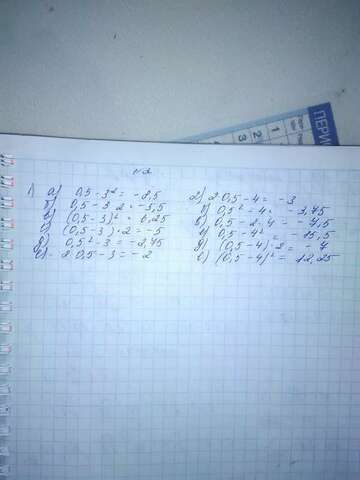 №2.
1) а) 0,5 - 3² = -8,5
б) 0,5 - 3·2 = -5,5
в) (0,5 - 3)² = 6,25
г) (0,5 - 3)·2 = -5
д) 0,5² - 3 = -2,75
е) 2·0,5 - 3 = -2
2) а) 2·0,5 - 4 = -3
б) 0,5² - 4 = -3,75
в) 0,5 - 2·4 = -7,5
г) 0,5 - 4² = -15,5
д) (0,5 - 4)·2 = -7
е) (0,5 - 4)² = 12,25
ПЕРИ
1
2
3